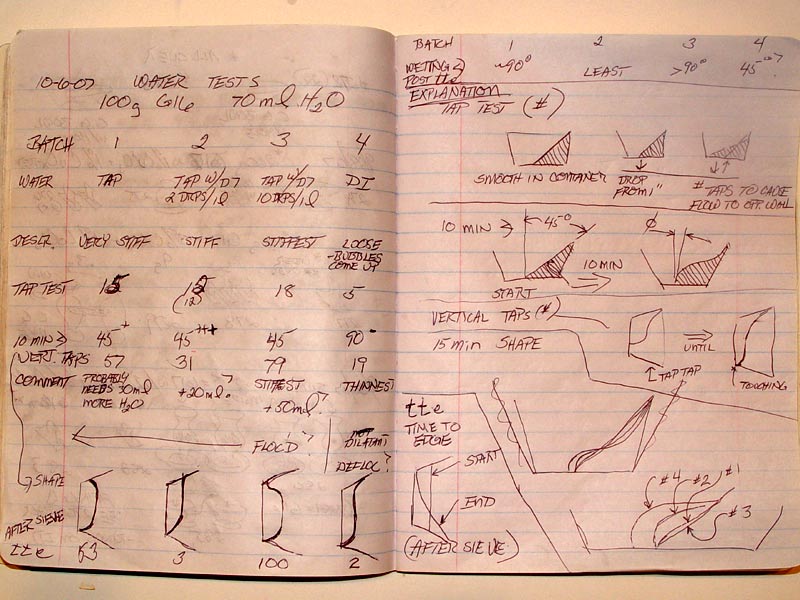 10-6-07 WATER TESTS
100g G116 70ml H2O
BATCH 1 2 3 4
WATER TAP TAP W/D7 TAP W/D7 DI
2 DRPS/1l 10 DRPS/1l
DESCR. VERY STIFF STIFF STIFFEST LOOSE
-BUBBLES
COME UP
TAP TEST 15 18 5
(12)
10 min > 45+ 45+++ 45 90-
VERT TAPS 57 31 79 19
COMMENT PROBABLY +20ml? STIFFEST THINNEST
NEEDS 30ml +50ml?
MORE H2O
FLOC'D? NOT
DILATANT
DEFLOC?
SHAPE
AFTER SIEVE
tte 63 3 100 2
BATCH 1 2 3 4
WETING ~90° LEAST >90° 45°?
POST tte
EXPLANATION
TAP TEST (#)
SMOOTH IN CONTAINER DROP FROM 1" # TAPS TO CAUSE
FLOW TO OPP. WALL
10 MIN > 45° φ
10 MIN
START
VERTICAL TAPS (#)
15 min SHAPE UNTIL
TAP TAP TOUCHING
tte
TIME TO
EDGE
START
END
(AFTER SIEVE)
#4 #2 #1
#3